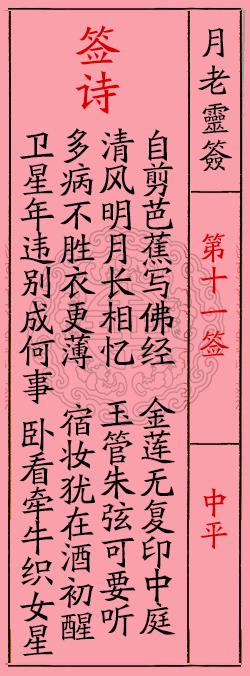 月老靈簽
第十一签
中平
签诗
自剪芭蕉写佛经 金莲无复印中庭
清风明月长相忆 玉管朱弦可要听
多病不胜衣更薄 宿妆犹在酒初醒
卫星年违别成何事 卧看牵牛织女星